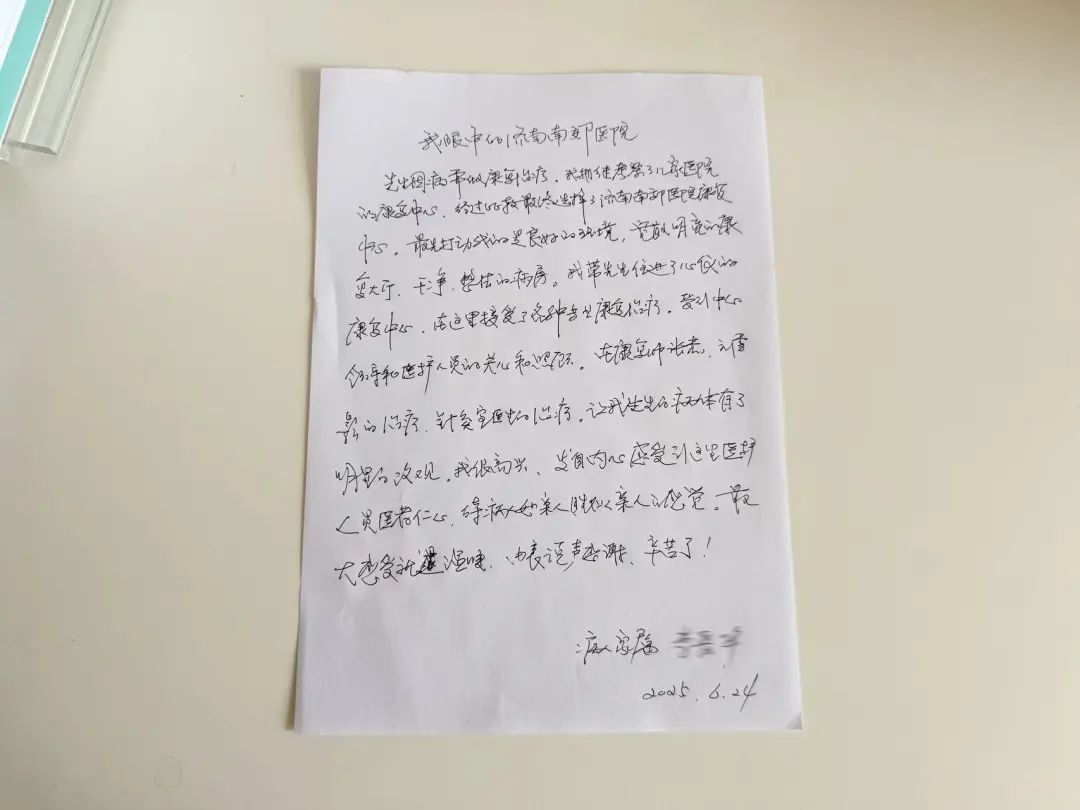 我眼中的济南南郊医院
先生因病需做康复治疗。我相继考察了几家医院
的康复中心，经过比较最终选择了济南南郊医院康复
中心。最先打动我的是良好的环境，宽敞明亮的康
复大厅、干净、整洁的病房。我带先生住进了心仪的
康复中心，在这里接受了各种专业康复治疗。受到中心
领导和医护人员的关心和照顾。在康复师张杰、
的治疗，针灸室医生的治疗。让我先生的病体有了
明显的改观。我很高兴、发自内心感受到这里医护
人员医者仁心，待病人如亲人胜似亲人的感觉。最
大感受就是温暖，由衷说声感谢，辛苦了！
病人家属
2025.6.24